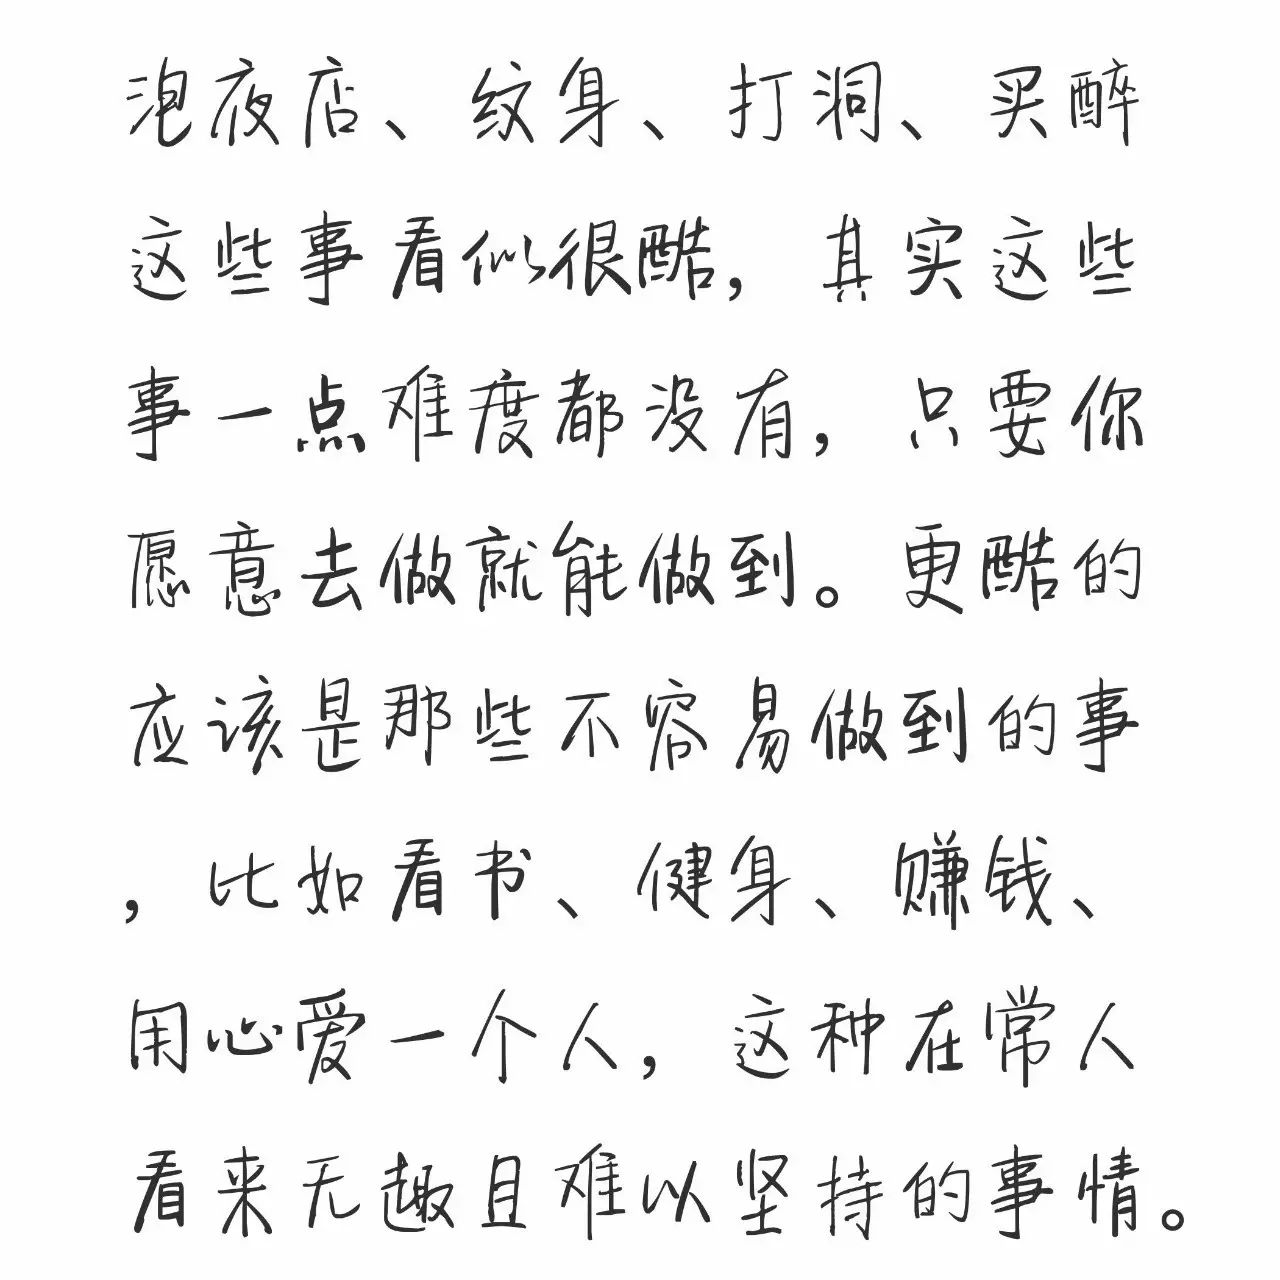 泡夜店、纹身、打洞、买醉
这些事看似很酷，其实这些
事一点难度都没有，只要你
愿意去做就能做到。更酷的
应该是那些不容易做到的事
，比如看书、健身、赚钱、
用心爱一个人，这种在常人
看来无趣且难以坚持的事情。